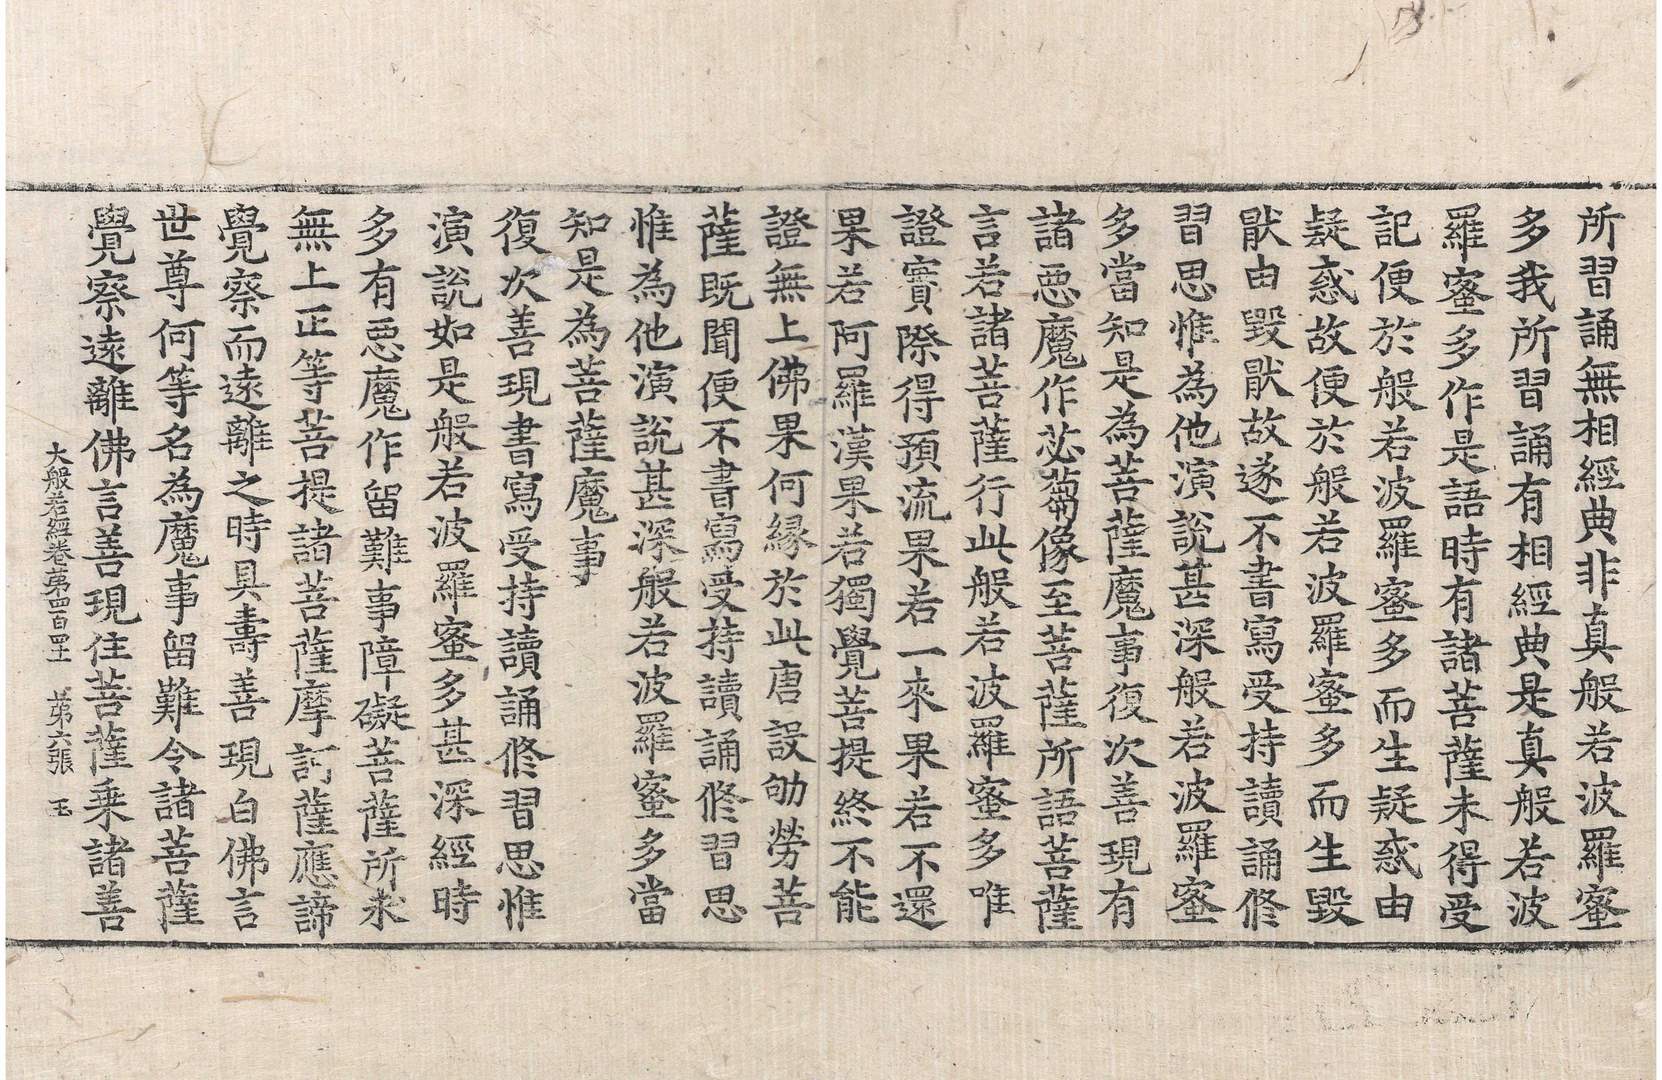 所習誦無相經典非真般若波羅蜜
多我所習誦有相經典是真般若波
羅蜜多作是語時有諸菩薩未得受
記便於般若波羅蜜多而生疑惑由
疑惑故便於般若波羅蜜多而生毀
猒由毀猒故遂不書寫受持讀誦修
習思惟為他演說甚深般若波羅蜜
多當知是為菩薩魔事復次善現有
諸惡魔作苾蒭像至菩薩所語菩薩
言若諸菩薩行此般若波羅蜜多唯
證實際得預流果若一來果若不還
果若阿羅漢果若獨覺菩提終不能
證無上佛果何緣於此唐設劬勞菩
薩既聞便不書寫受持讀誦修習思
惟為他演說甚深般若波羅蜜多當
知是為菩薩魔事
復次善現書寫受持讀誦修習思惟
演說如是般若波羅蜜多甚深經時
多有惡魔作留難事障礙菩薩所求
無上正等菩提諸菩薩摩訶薩應諦
覺察而遠離之時具壽善現白佛言
世尊何等名為魔事留難令諸菩薩
覺察遠離佛言善現住菩薩乘諸善
大般若經卷第四百四十 第六張 玉